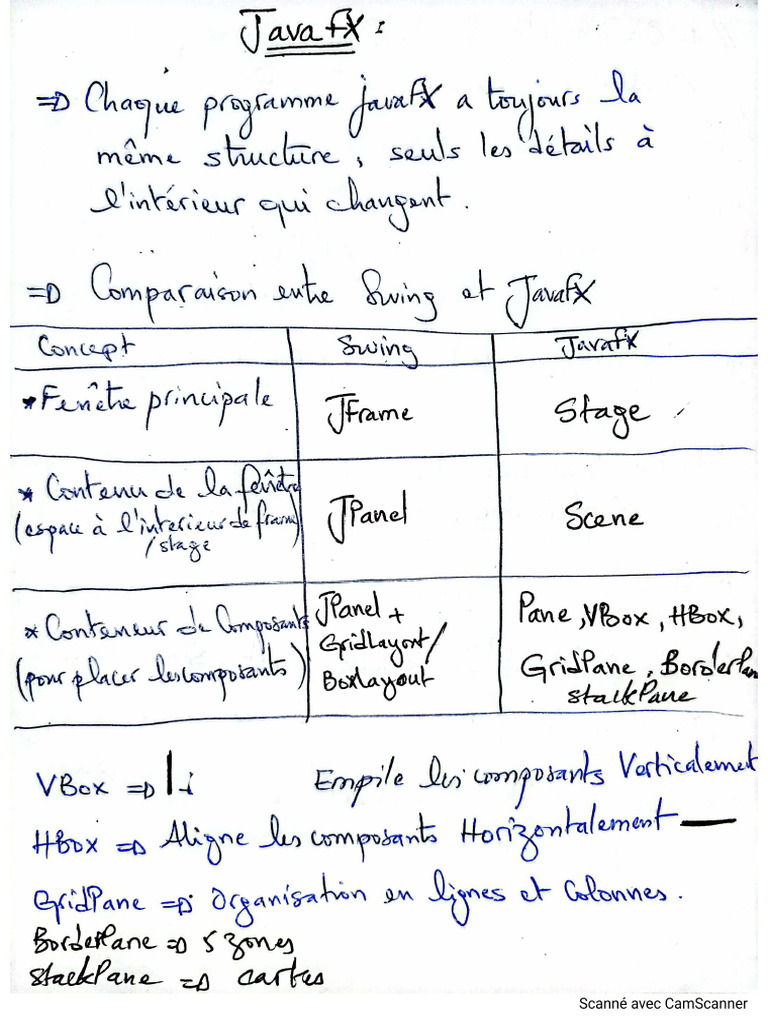 JavaFX :
=> Chaque programme javaFX a toujours la
même structure, seuls les détails à
l'intérieur qui changent.
=> Comparaison entre Swing et JavaFX
Concept Swing JavaFX
* Fenêtre principale JFrame Stage
* Contenu de la fenêtre
(espace à l'interieur de frame)
/stage
JPanel Scene
* Conteneur de Composants
(pour placer les composants)
JPanel +
GridLayout/
Boxlayout
Pane, VBox, HBox,
GridPane, BorderPane
stackPane
VBox => | Empile les composants Verticalement
HBox => Aligne les composants Horizontalement —
GridPane => Organisation en lignes et Colonnes.
BorderPane => 5 zones
StackPane => cartes
Scanné avec CamScanner